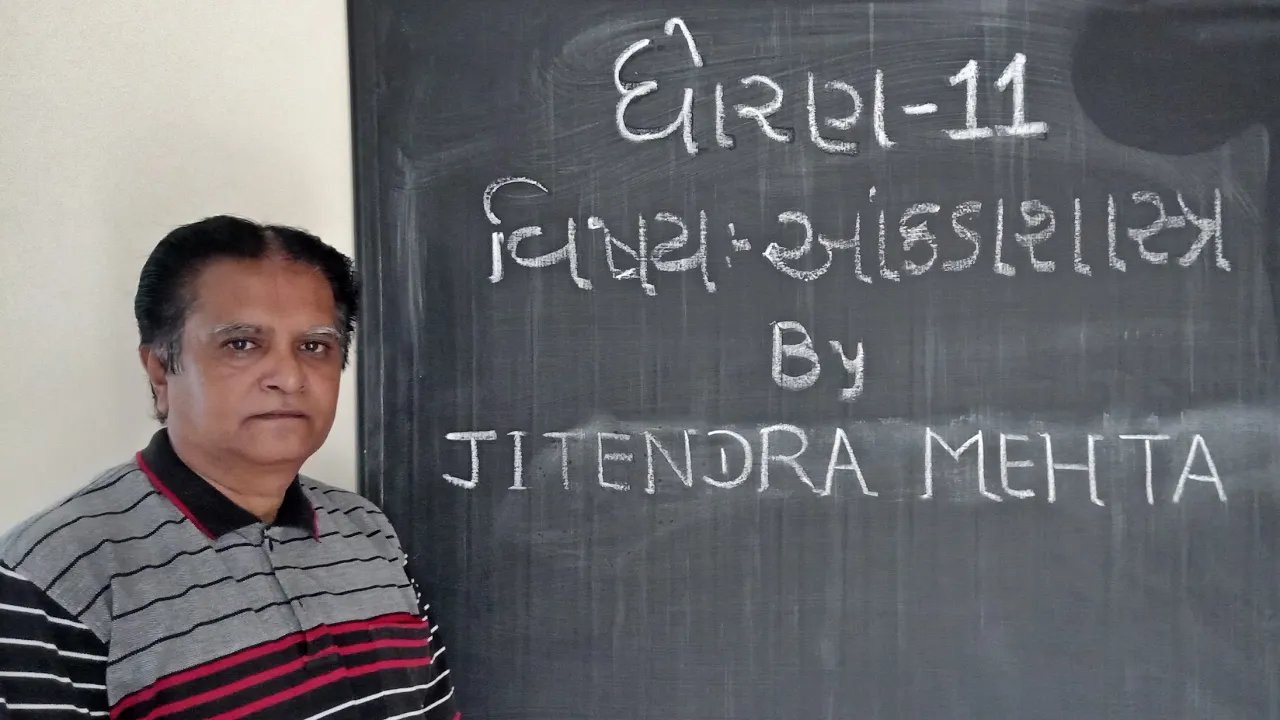 ધોરણ-11
વિષય:-આંકડાશાસ્ત્ર
By
JITENDRA MEHTA